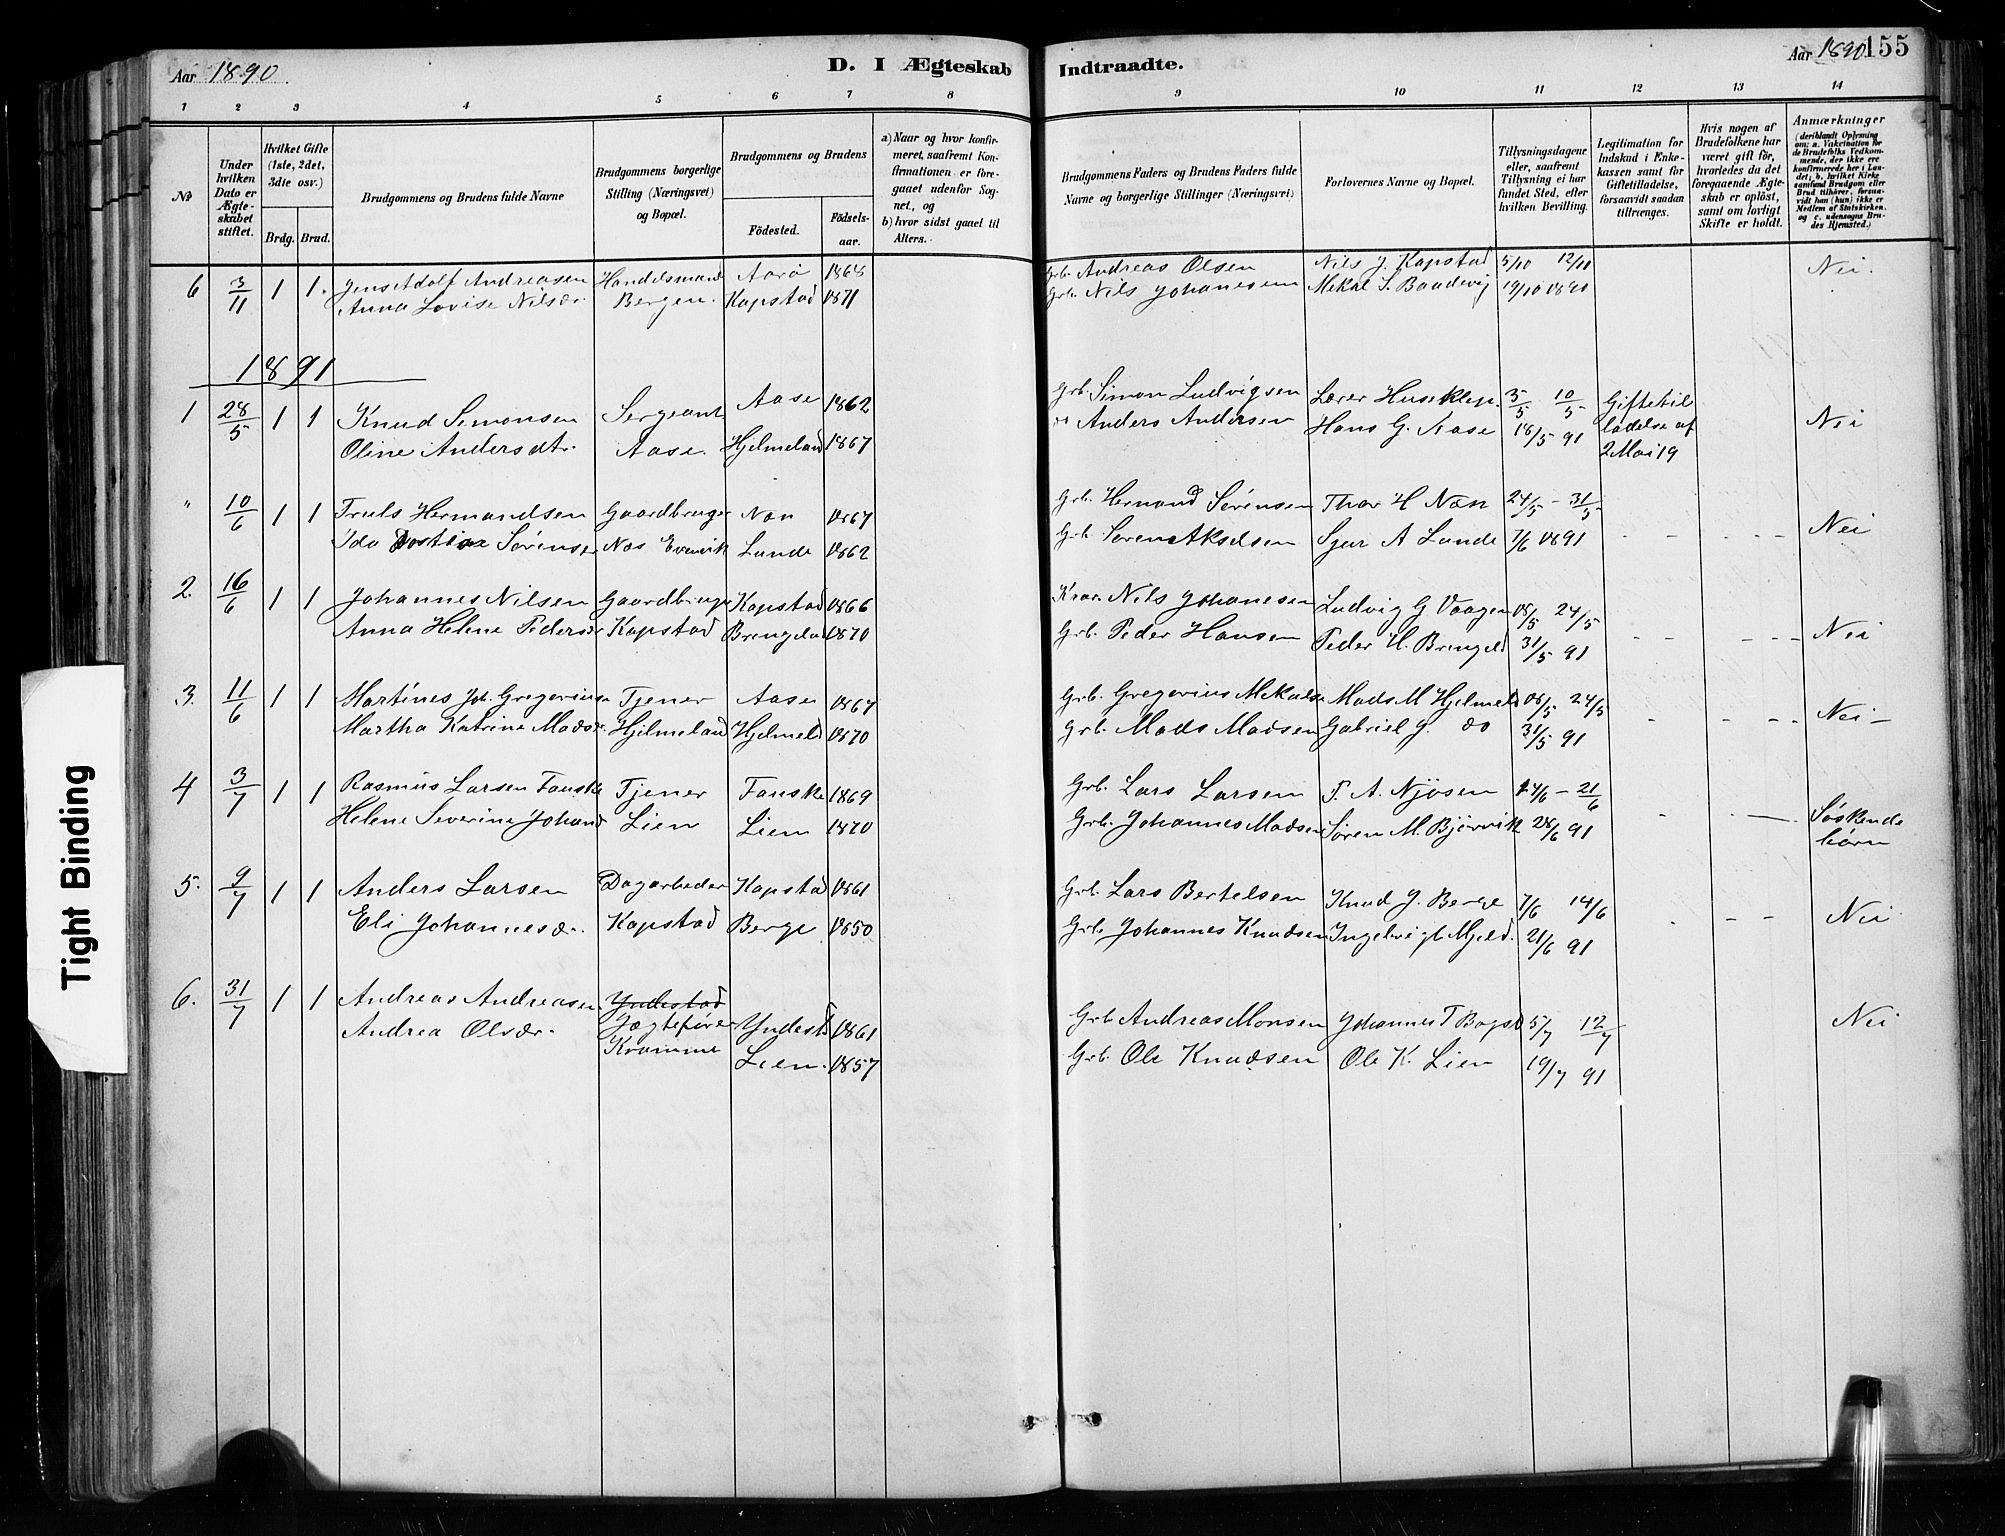 Aar 1890.
D. I Ægteskab Indtraadte.
Aar 1890 155
1 2 3 4 5 6 7 8 9 10 11 12 13 14
№
Under hvilken Dato er Ægteskabet stiftet.
Hvilket Gifte (1ste, 2det, 3dte osv.)
Brdg. Brud.
Brudgommens og Brudens fulde Navne
Brudgommens borgerlige Stilling (Næringsvei) og Bopæl.
Brudgommens og Brudens
Födested. Födselsaar.
a) Naar og hvor konfirmeret, saafremt Konfirmationen er foregaaet udenfor Sognet, og
b) hvor sidst gaaet til Alters.
Brudgommens Faders og Brudens Faders fulde Navne og borgerlige Stillinger (Næringsvei)
Forlovernes Navne og Bopæl.
Tillysningsdagene eller, saafremt Tillysning ei har fundet Sted, efter hvilken Bevilling.
Legitimation for Indskud i Enkekassen samt for Giftetilladelse, forsaavidt saadan tiltrænges.
Hvis nogen af Brudefolkene har været gift för, hvorledes du det foregaaende Ægteskab er oplöst, samt om lovligt Skifte er holdt.
Anmærkninger
(deriblandt Oplysning om: a. Vakcination for de Brudefolks Vedkommende, der ikke ere konfirmerede her i Landet; b. hvilket Kirkesamfund Brudgom eller Brud tilhörer, forsaavidt han (hun) ikke er Medlem af Statskirken. og c. udensogns Brudes Hjemsted.)
6 3/11 1 1. Jens Adolf Andreasen Handelsmand Aarö 1868 Grb. Andreas Olsen Nils J. Kapstad 5/10 12/10 Nei.
Anna Lovise Nilsdr. Bergen. Kapstad 1871 Grb. Nils Johanesen Mekal S. Baadevig 19/10 1890
1891
1 28/5 1 1 Knud Simonsen Sergeant Aase 1862 Grb. Simon Ludvigsen Lærer Huseklep. 3/5 10/5 Giftetil
Oline Andersdtr. Aase. Hjelmeland 1867 Anders Andersen Hans G. Aase 18/5 91 ladelse af Nei
2 Mai 19
" 10/6 1 1 Truls Hermandsen Gaardbruger Næs 1867 Grb. Hermand Sørensen Thor H Næs 24/5 - 31/5
Ida Sørensdr Næs Evenvik Lunde 1862 Grb. Søren Akselsen Sjur A Lunde 7/6 1891 - - - - - Nei
2. 16/6 1 1 Johannes Nilsen Gaardbruger Kapstad 1866 Nils Johanesen Ludvig G Vaagen 18/5 24/5
Anna Helene Pedersdr Kapstad Brengelad 1870 Grb. Peder Hansen Peder H. Brengeld 31/5 91 - - - - - Nei
3. 11/6 1 1 Martines Joh. Gregeriusen Tjener Aase 1867 Grb. Gregerius Mekalse Mads M Hjelmeld 18/5 24/5
Martha Katrine Madsdr. Hjelmeland Hjelmeld 1870 Grb. Mads Madsen Gabriel J. do 31/5 91 - - - - Nei -
4 3/7 1 1 Rasmus Larsen Fanske Tjener Fanske 1869 Grb. Lars Larsen T. A. Njøsen 14/6 - 21/6
Helene Severine Johand Lien Lien 1870 Grb. Johannes Madsen Søren M. Bjørvik 28/6 91 - - — Søskende
børn
5. 9/7 1 1 Anders Larsen Dagarbeder Kapstad 1861 Grb. Lars Bertelsen Knud J. Berge 7/6 14/6
Eli Johannesdr. Kapstad Berge 1850 Grb. Johannes Knudsen Ingelvigt Mjeld. 21/6 91 - - - Nei
6. 31/7 1 1 Andreas Andreasen Yndestad
Andrea Olsdr. Jægtefører Yndestd 1861 Grb Andreas Monsen Johannes T Bogst 5/7 12/7 Nei
Kromme Lien. 1857 Grb. Ole Knudsen Ole K. Lien 19/7 91
Tight Binding